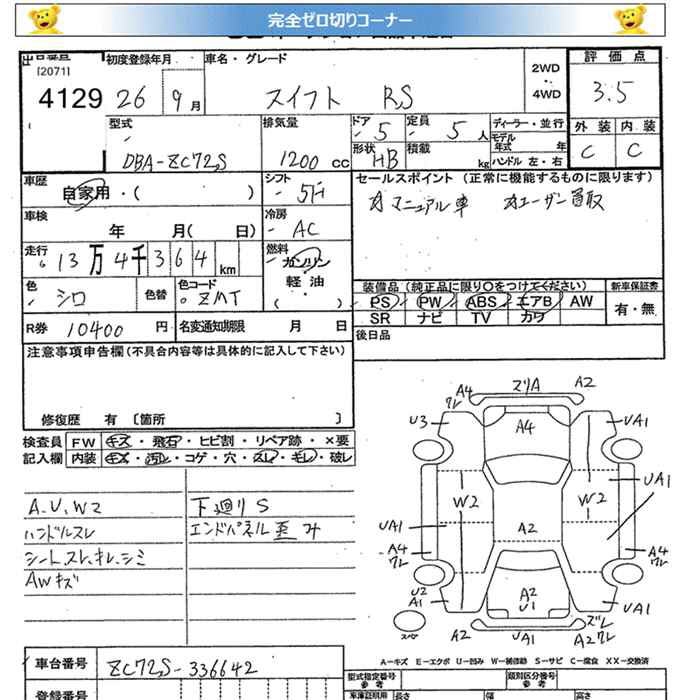 完全ゼロ切りコーナー
[2071]
初度登録年月 車名・グレード 評価点
4129 26 9月 スイフト RS 2WD ・ 4WD 3.5
外装 内装
C C
型式 排気量 ドア 定員 ディーラー・並行
DBA-ZC72S 1200cc 5 5人 モデル年式 年
形状 積載 kg ハンドル 左・右
HB
車歴 シフト セールスポイント (正常に機能するものに限ります)
自家用・( ) 5F
マニュアル車 ユーザー買取
車検 冷房
年 月( 日) AC
走行 燃料
13万4千364km ガソリン
軽油
( )
色 色替 色コード
シロ ZMT
装備品 (純正品に限り○をつけてください) 新車保証書
PS PW ABS エアB AW 有・無
SR ナビ TV カワ
R券 10400円 名変通知期限 月 日
後日品
注意事項申告欄(不具合内容等は具体的に記入して下さい)
修復歴 有 [箇所 ]
検査員 FW キズ・飛石・ヒビ割・リペア跡・×要
記入欄 内装 キズ・汚レ・コゲ・穴・スレ・キレ・破レ
A.U.W2 下廻りS
ハンドルスレ エンドパネル歪み
シートスレ、キレ、シミ
AWキズ
A4 ワレ ズリA A2
U3 A4 UA1
W2 W2 UA1
UA1 A2
A4 ワレ A4 ワレ
U2 A1 A2 U1 UA1
スペア A2 UA1 ズレ A2ワレ
A-キズ E-エクボ U-凹み W-補修跡 S-サビ C-腐食 XX-交換済
車台番号 ZC72S-336642
型式指定番号 参考 類別区分番号 参考
登録番号 車庫証明用 長さ 幅 高さ